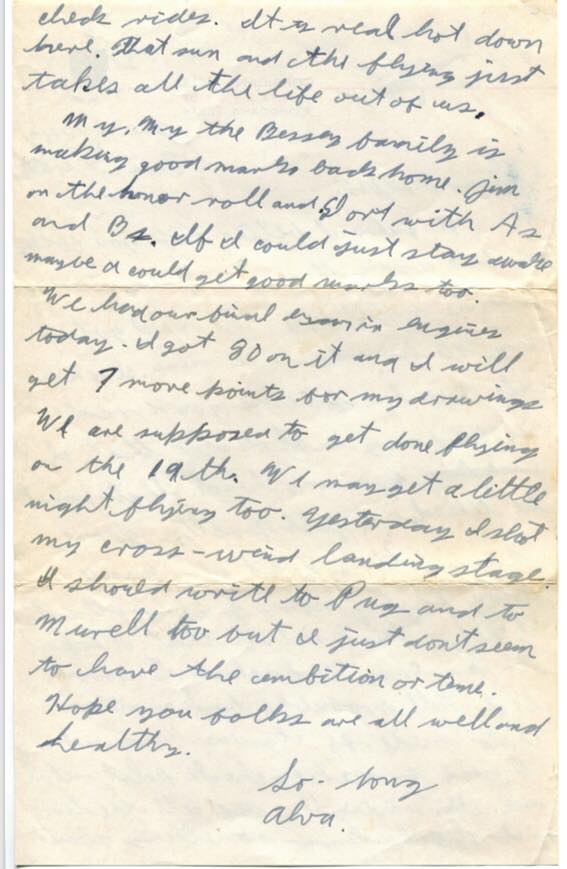 check rides. It is real hot down
here. That sun and the flying just
takes all the life out of us.
My, My the Bessey family is
making good marks back home. Jim
on the honor roll and with As
and Bs. If I could just stay awake
maybe I could get good marks too.
We had our final exam in engines
today. I got 80 on it and I will
get 7 more points for my drawings
We are supposed to get done flying
on the 19th. We may get a little
night flying too. Yesterday I shot
my cross-wind landing stage.
I should write to Pug and to
Murell too but I just don't seem
to have the ambition or time.
Hope you folks are all well and
healthy.
So-long
Alva.